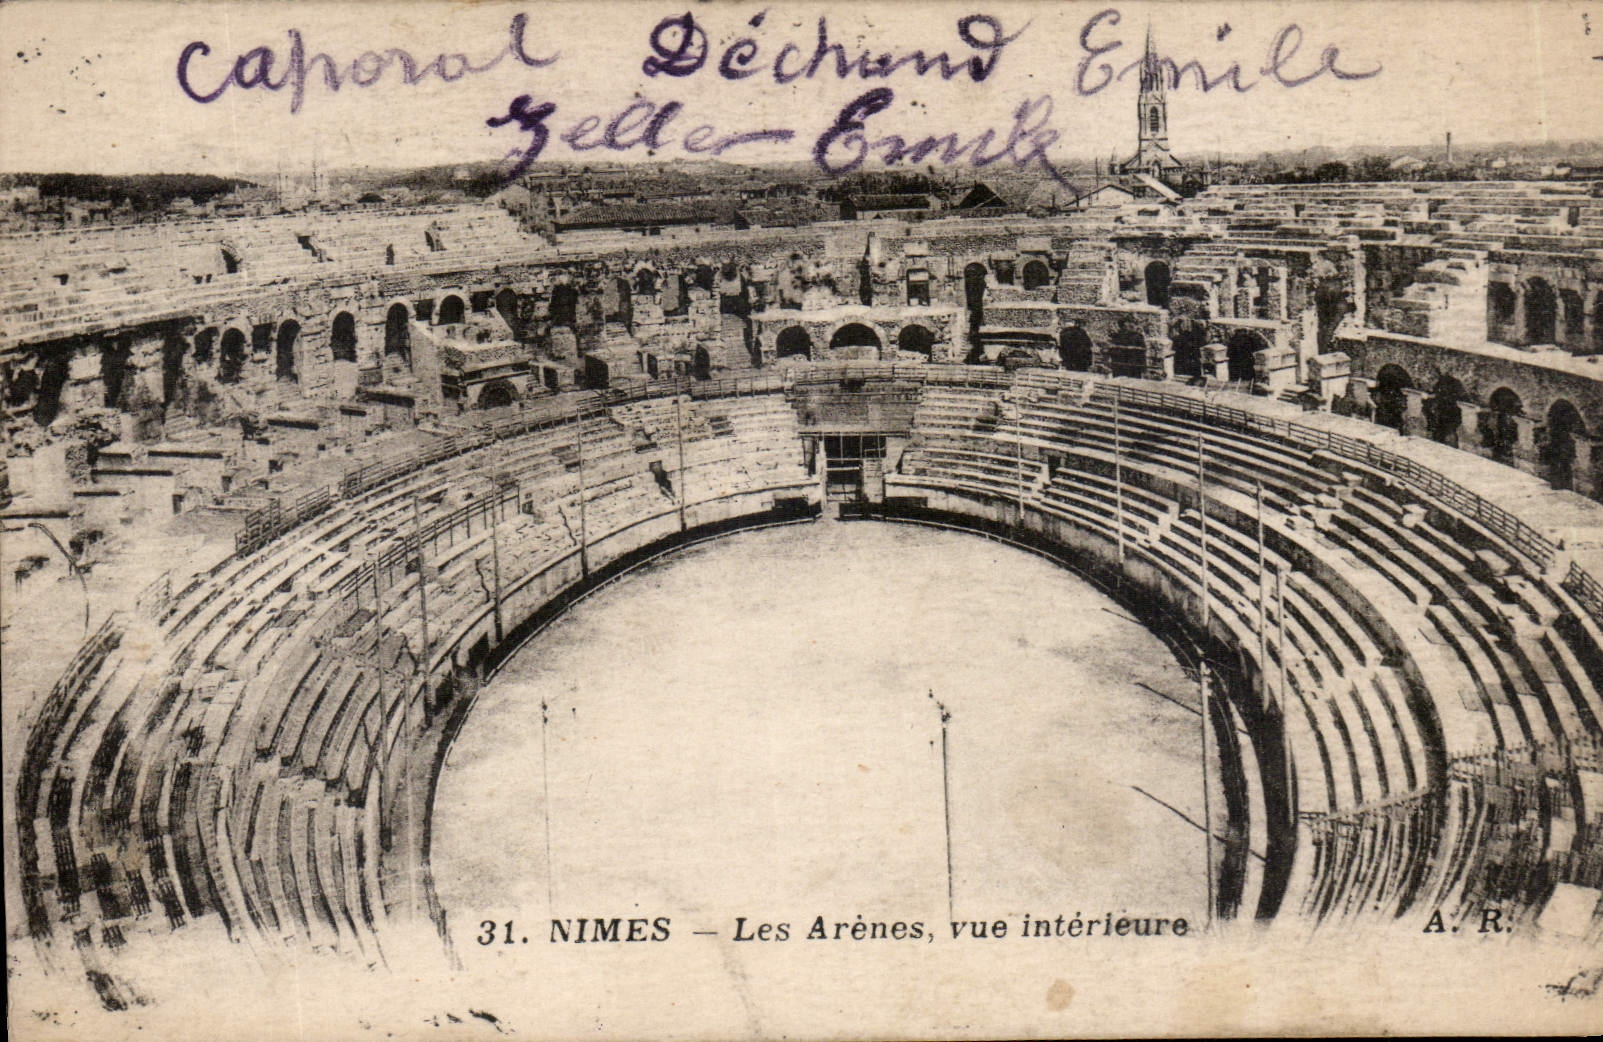 Caporal Déchund Emile
Zeller Emile
31. NIMES — Les Arènes, vue intérieure
A. R.